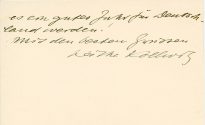 es ein gutes Jahr für Deutsch-
land werden.
Mit den besten Grüssen
Käthe Kollwitz